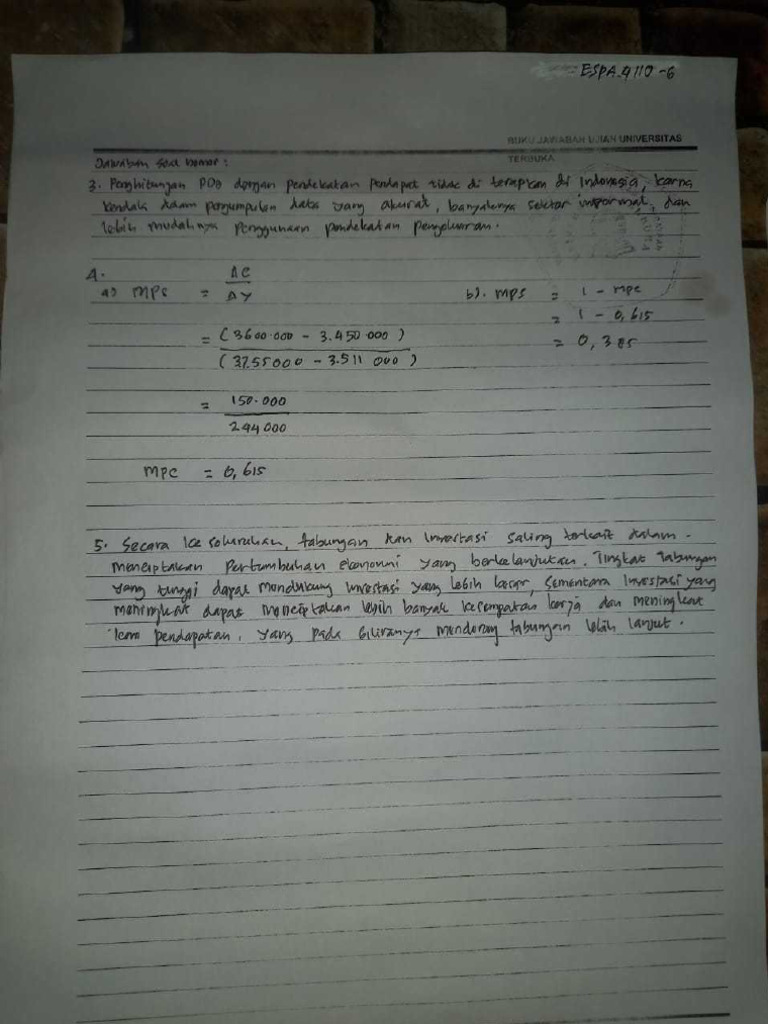 ESPA 4110 - 6
BUKU JAWABAN UJIAN UNIVERSITAS
TERBUKA
Jawaban soal nomor :
3. Penghitungan PDB dengan pendekatan pendapat tidac di terapkan di Indonesia, karna
kendala dalam pengumpulan data yang akurat, banyaknya sektor impormal, dan
lebih mudahnya penggunaan pendekatan pengeluaran.
4.
a) MPS = ΔC / ΔY
= (3600.000 - 3.450 000) / (3755000 - 3.511 000)
= 150.000 / 244 000
MPC = 0,615
b). MPS = 1 - MPC
= 1 - 0,615
= 0,385
5. Secara keseluruhan, tabungan dan investasi saling terkait dalam
menciptakan pertumbuhan ekonomi yang berkelanjutan. Tingkat tabungan
yang tinggi dapat mendukung investasi yang lebih besar, sementara investasi yang
meningkat dapat menciptakan lebih banyak kesempatan kerja dan meningkat
kan pendapatan, yang pada gilirannya mendorong tabungan lebih lanjut.